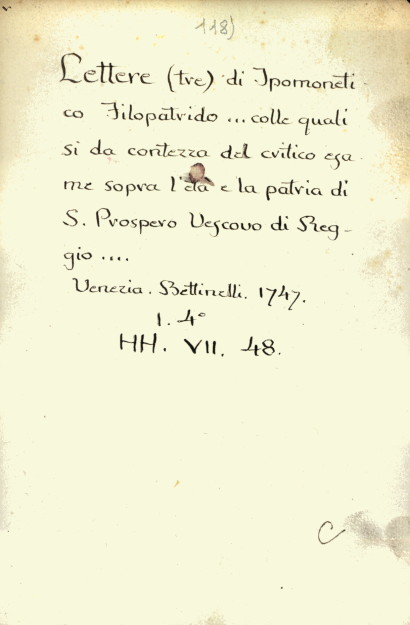 118)
Lettere (tre) di Ipomoneti-
co Filopatrido ... colle quali
si da contezza del critico esa-
me sopra l'età e la patria di
S. Prospero Vescovo di Reg-
gio ....
Venezia. Bettinelli. 1747.
1. 4°
HH. VII. 48.
C